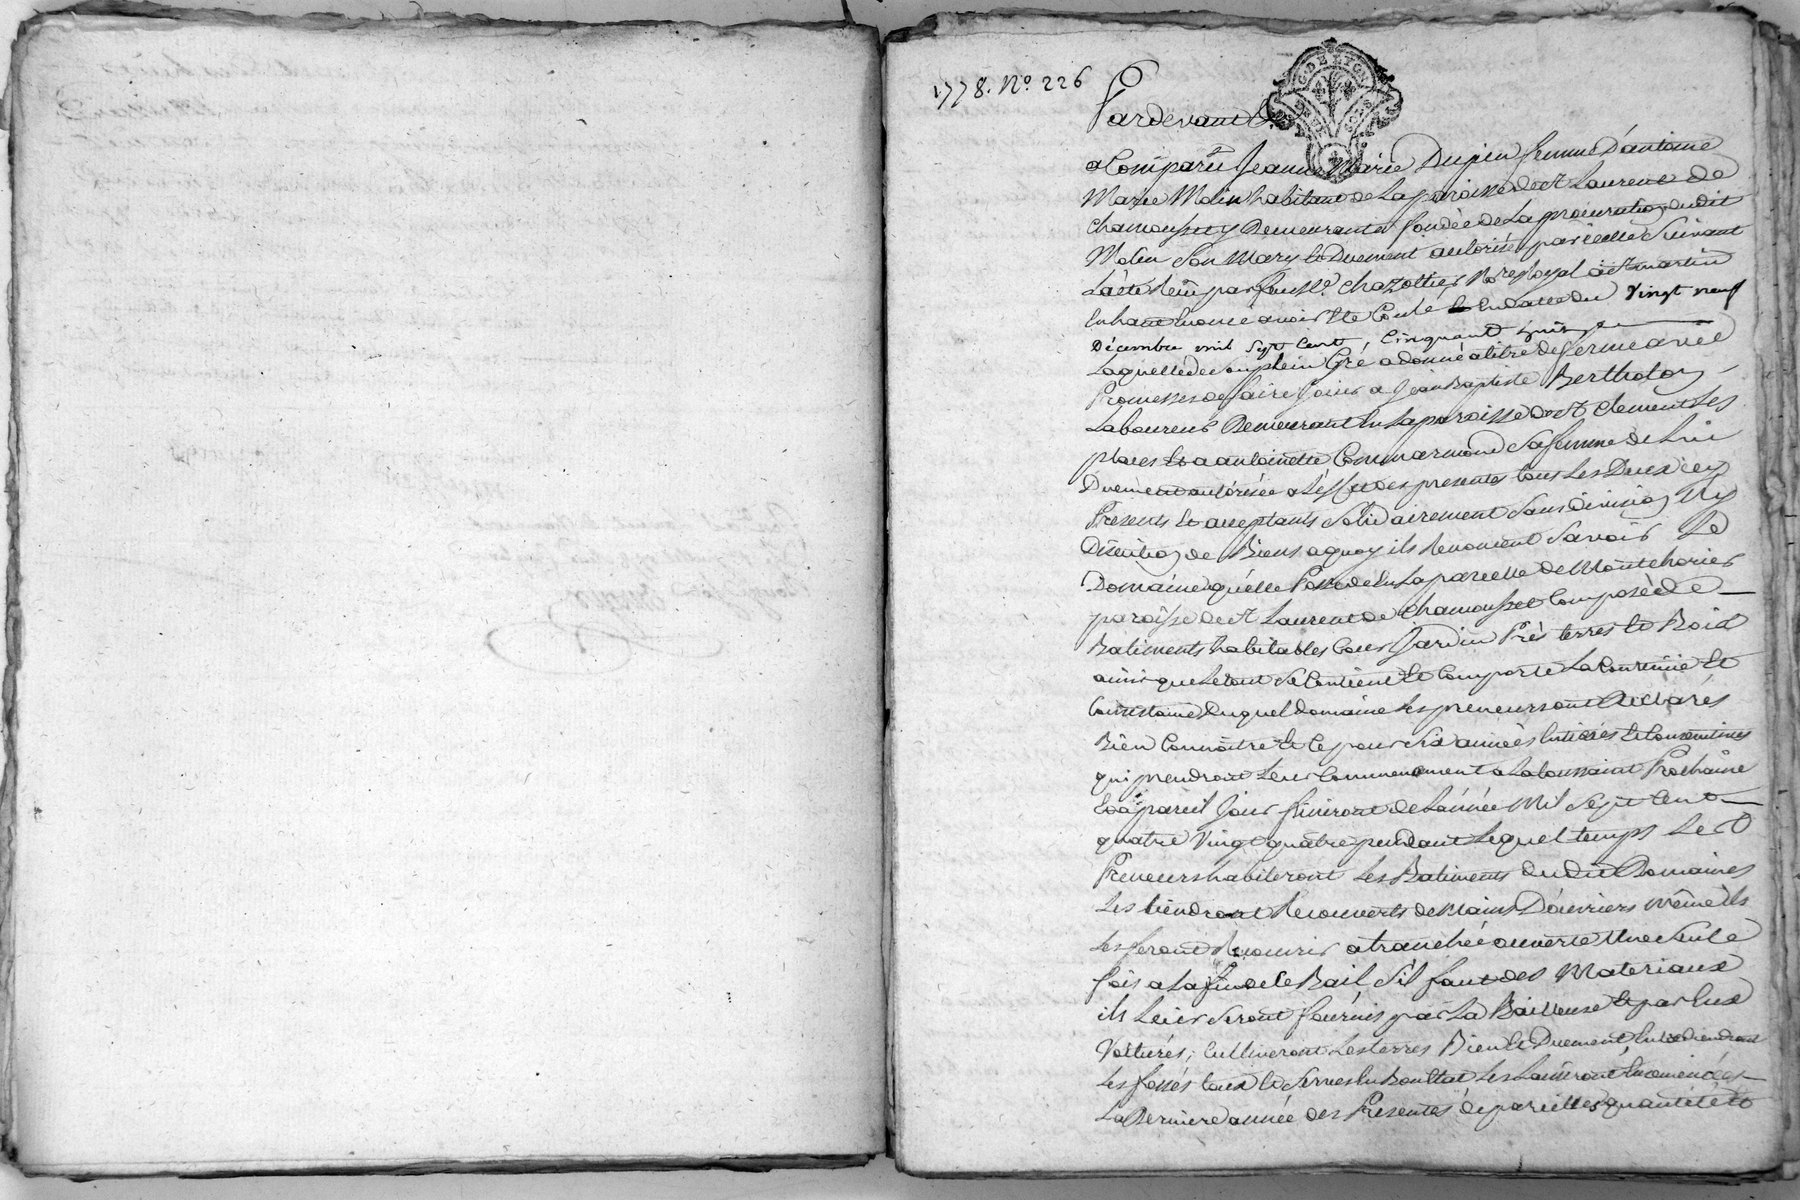 1778. No. 226
Pardevant &
G. DE LYON
a Comparu Jeanne Marie Dupin femme d'antoine
Marie Molin habitant de La paroisse de St Laurent de
Chamousset y Demeurante fondée de La procuration dudit
Molin Son Mary Et Duement autorisée par icelle Suivant
L'acte Reçu par feu Me. Chazottier Nore Royal à St martin
En haut avoir Ete Conté Endatte du vingt neuf
Décembre mil sept Cent, Cinquante
Laquelle de son plein Gré a donné a titre de ferme avec
Promesses de faire Jouir a Jean Baptiste Bertholon
Laboureur Demeurant En La paroisse de St Clement Les
places Et a antoinette Commarmond Sa femme de Lui
Duement autorisée a L'effet des presentes tous Les Deux icy
Presents Et acceptants Solidairement Sans division Ny
Discution de Biens a quoy ils Renoncent Savoir Le
Domaine qu'elle Possede En La parcelle de Montchorier
paroisse de St Laurent de Chamousset Composé de
Batiments habitables Cour Jardin Prés terres Et Bois
ainsi que Le tout Se Contient Et Comporte La Contenüe Et
Consistance Duquel domaine Les preneurs ont declarés
Bien Connoitre Et Ce pour Six années Entieres Et Consecutives
qui prendront Leur Commencement a La toussaint Prochaine
Et a pareil Jour finiront de L'année Mil Sept Cent
quatre Vingt quatre pendant Lequel temps Les
Preneurs habiteront Les Batiments du dit Domaine
Les tiendront Recouverts de Mains D'ouvriers même ils
Les feront Recouvrir a tranchée ouverte Une Seule
fois a La fin de Ce Bail S'il faut des Materiaux
ils Leur Seront fournis par La Bailleuse Et par Eux
Voiturés; Cultiveront Les terres Bien Et Duement, Entretiendront
Les fossés Et Serves En Bon Etat Les Laisseront Ensemencées
La Derniere année des Presentes de pareilles quantité Et